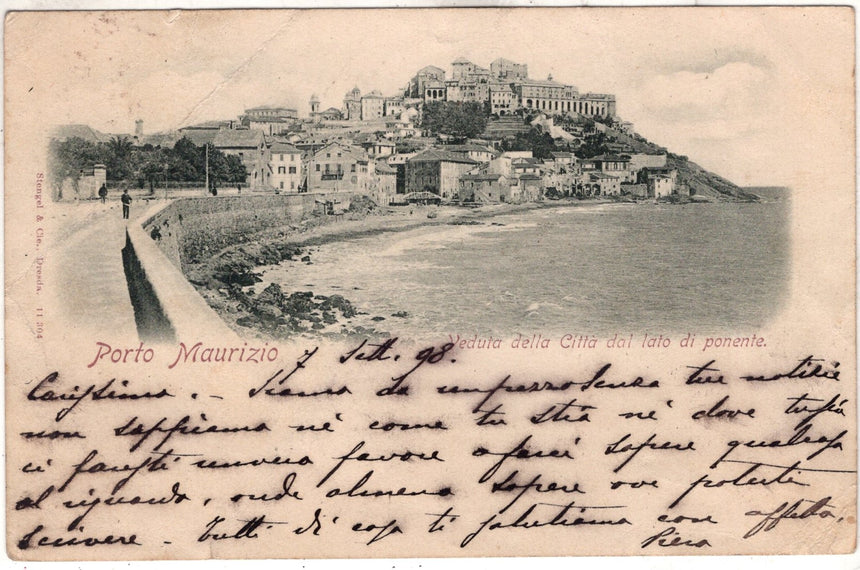 Stengel & Cie., Dresda. 11 304
Porto Maurizio
Veduta della Città dal lato di ponente.
7 Sett. 98.
Carissima. - Siamo da un pezzo senza tue notizie
non sappiamo nè come tu stia nè dove tu sia
ci faresti un vero favore a farci sapere qualcosa
al riguardo, onde almeno sapere ove poterti
scrivere - Tutti di casa ti salutiamo con affetto,
Piero